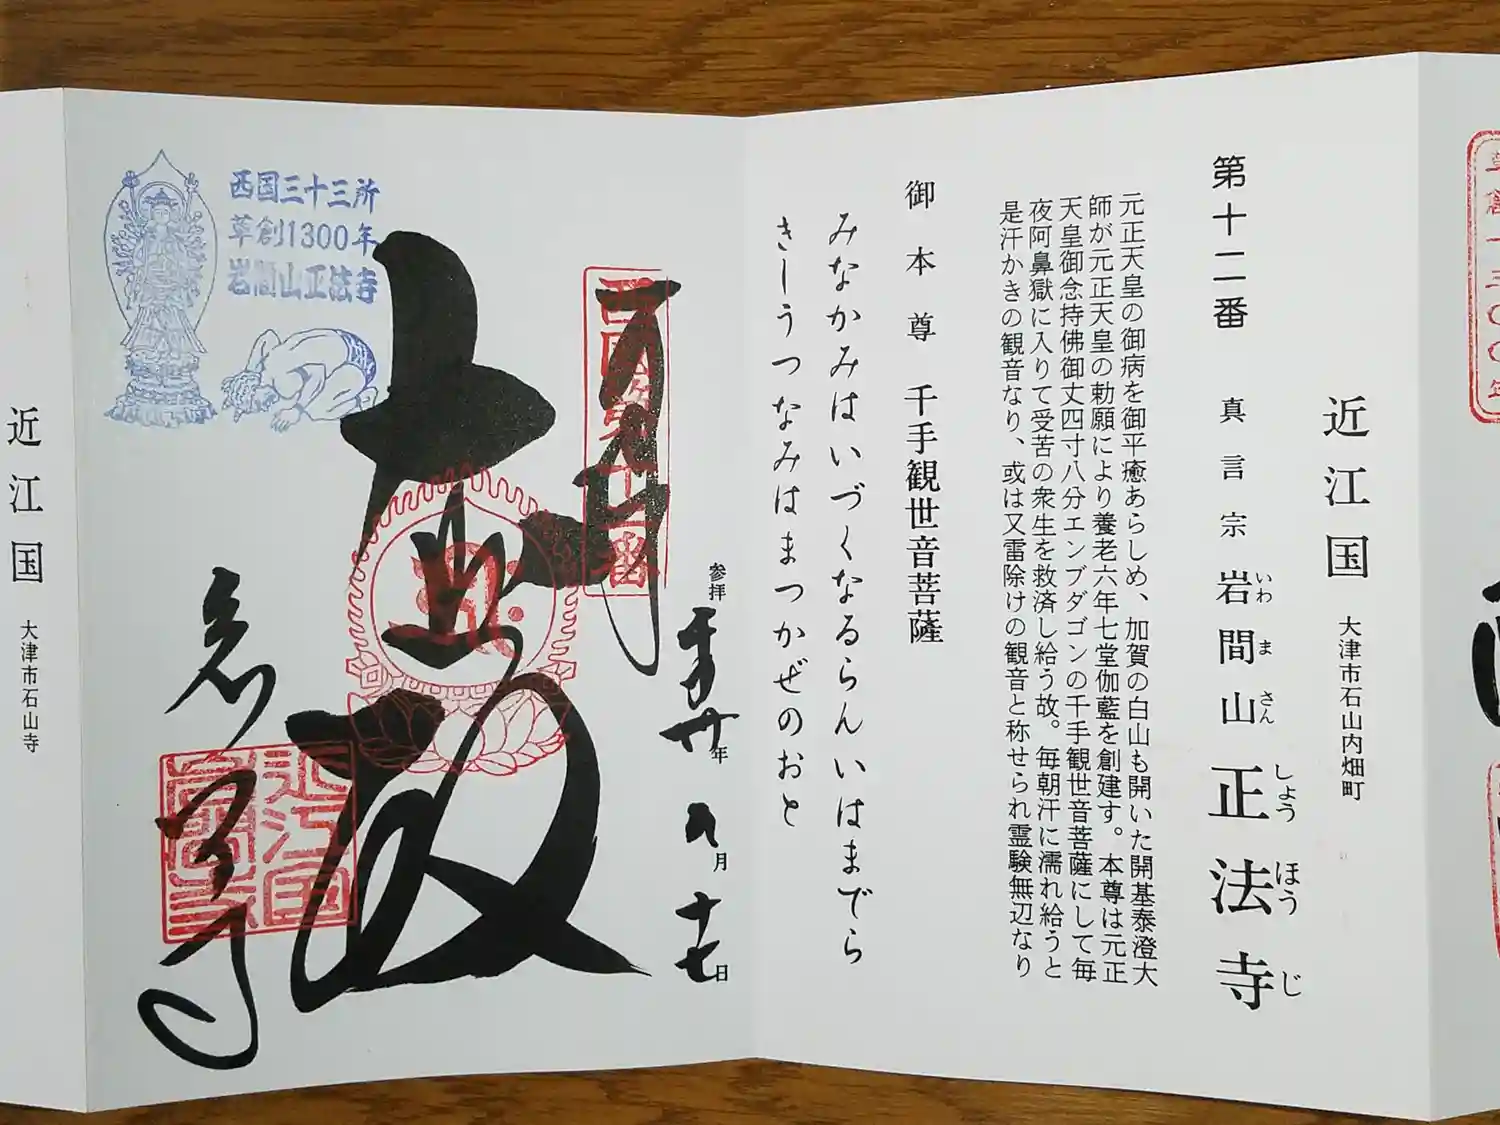 近江国 大津市石山内畑町
第十二番 真言宗 岩間山 正法寺
いわ ま さん しょう ほう じ
元正天皇の御病を御平癒あらしめ、加賀の白山も開いた開基泰澄大
師が元正天皇の勅願により養老六年七堂伽藍を創建す。本尊は元正
天皇御念持佛御丈四寸八分エンブダゴンの千手観世音菩薩にして毎
夜阿鼻獄に入りて受苦の衆生を救済し給う故。毎朝汗に濡れ給うと
是汗かきの観音なり、或は又雷除けの観音と称せられ霊験無辺なり
御本尊 千手観世音菩薩
みなかみはいづくなるらんいはまでら
きしうつなみはまつかぜのおと
参拝
年
月
十七日
西国三十三所
草創1300年
岩間山正法寺
近江国 大津市石山寺
草創一三〇〇年